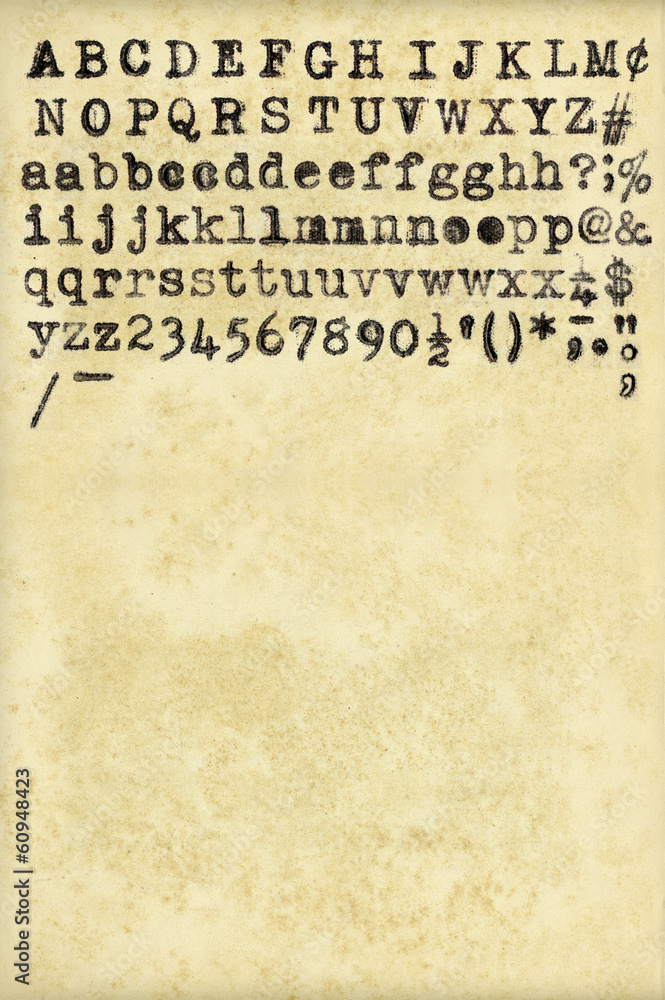 A B C D E F G H I J K L M ¢
N O P Q R S T U V W X Y Z #
a a b b c c d d e e f f g g h h ? ; %
i i j j k k l l m m n n o o p p @ &
q q r r s s t t u u v v w w x x ¼ $
y z z 2 3 4 5 6 7 8 9 0 ½ ' ( ) * - , . " o
/ — ,
Adobe Stock | #60948423